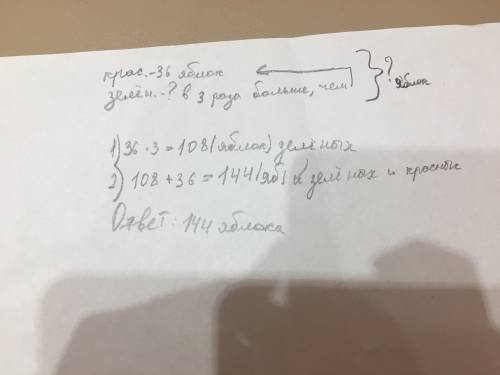 крас.-36 яблок
зелён.-? в 3 раза больше, чем ? яблок
1) 36·3=108(яблок) зелёных
2) 108+36=144(яб) зелёных и красных
Ответ: 144 яблока